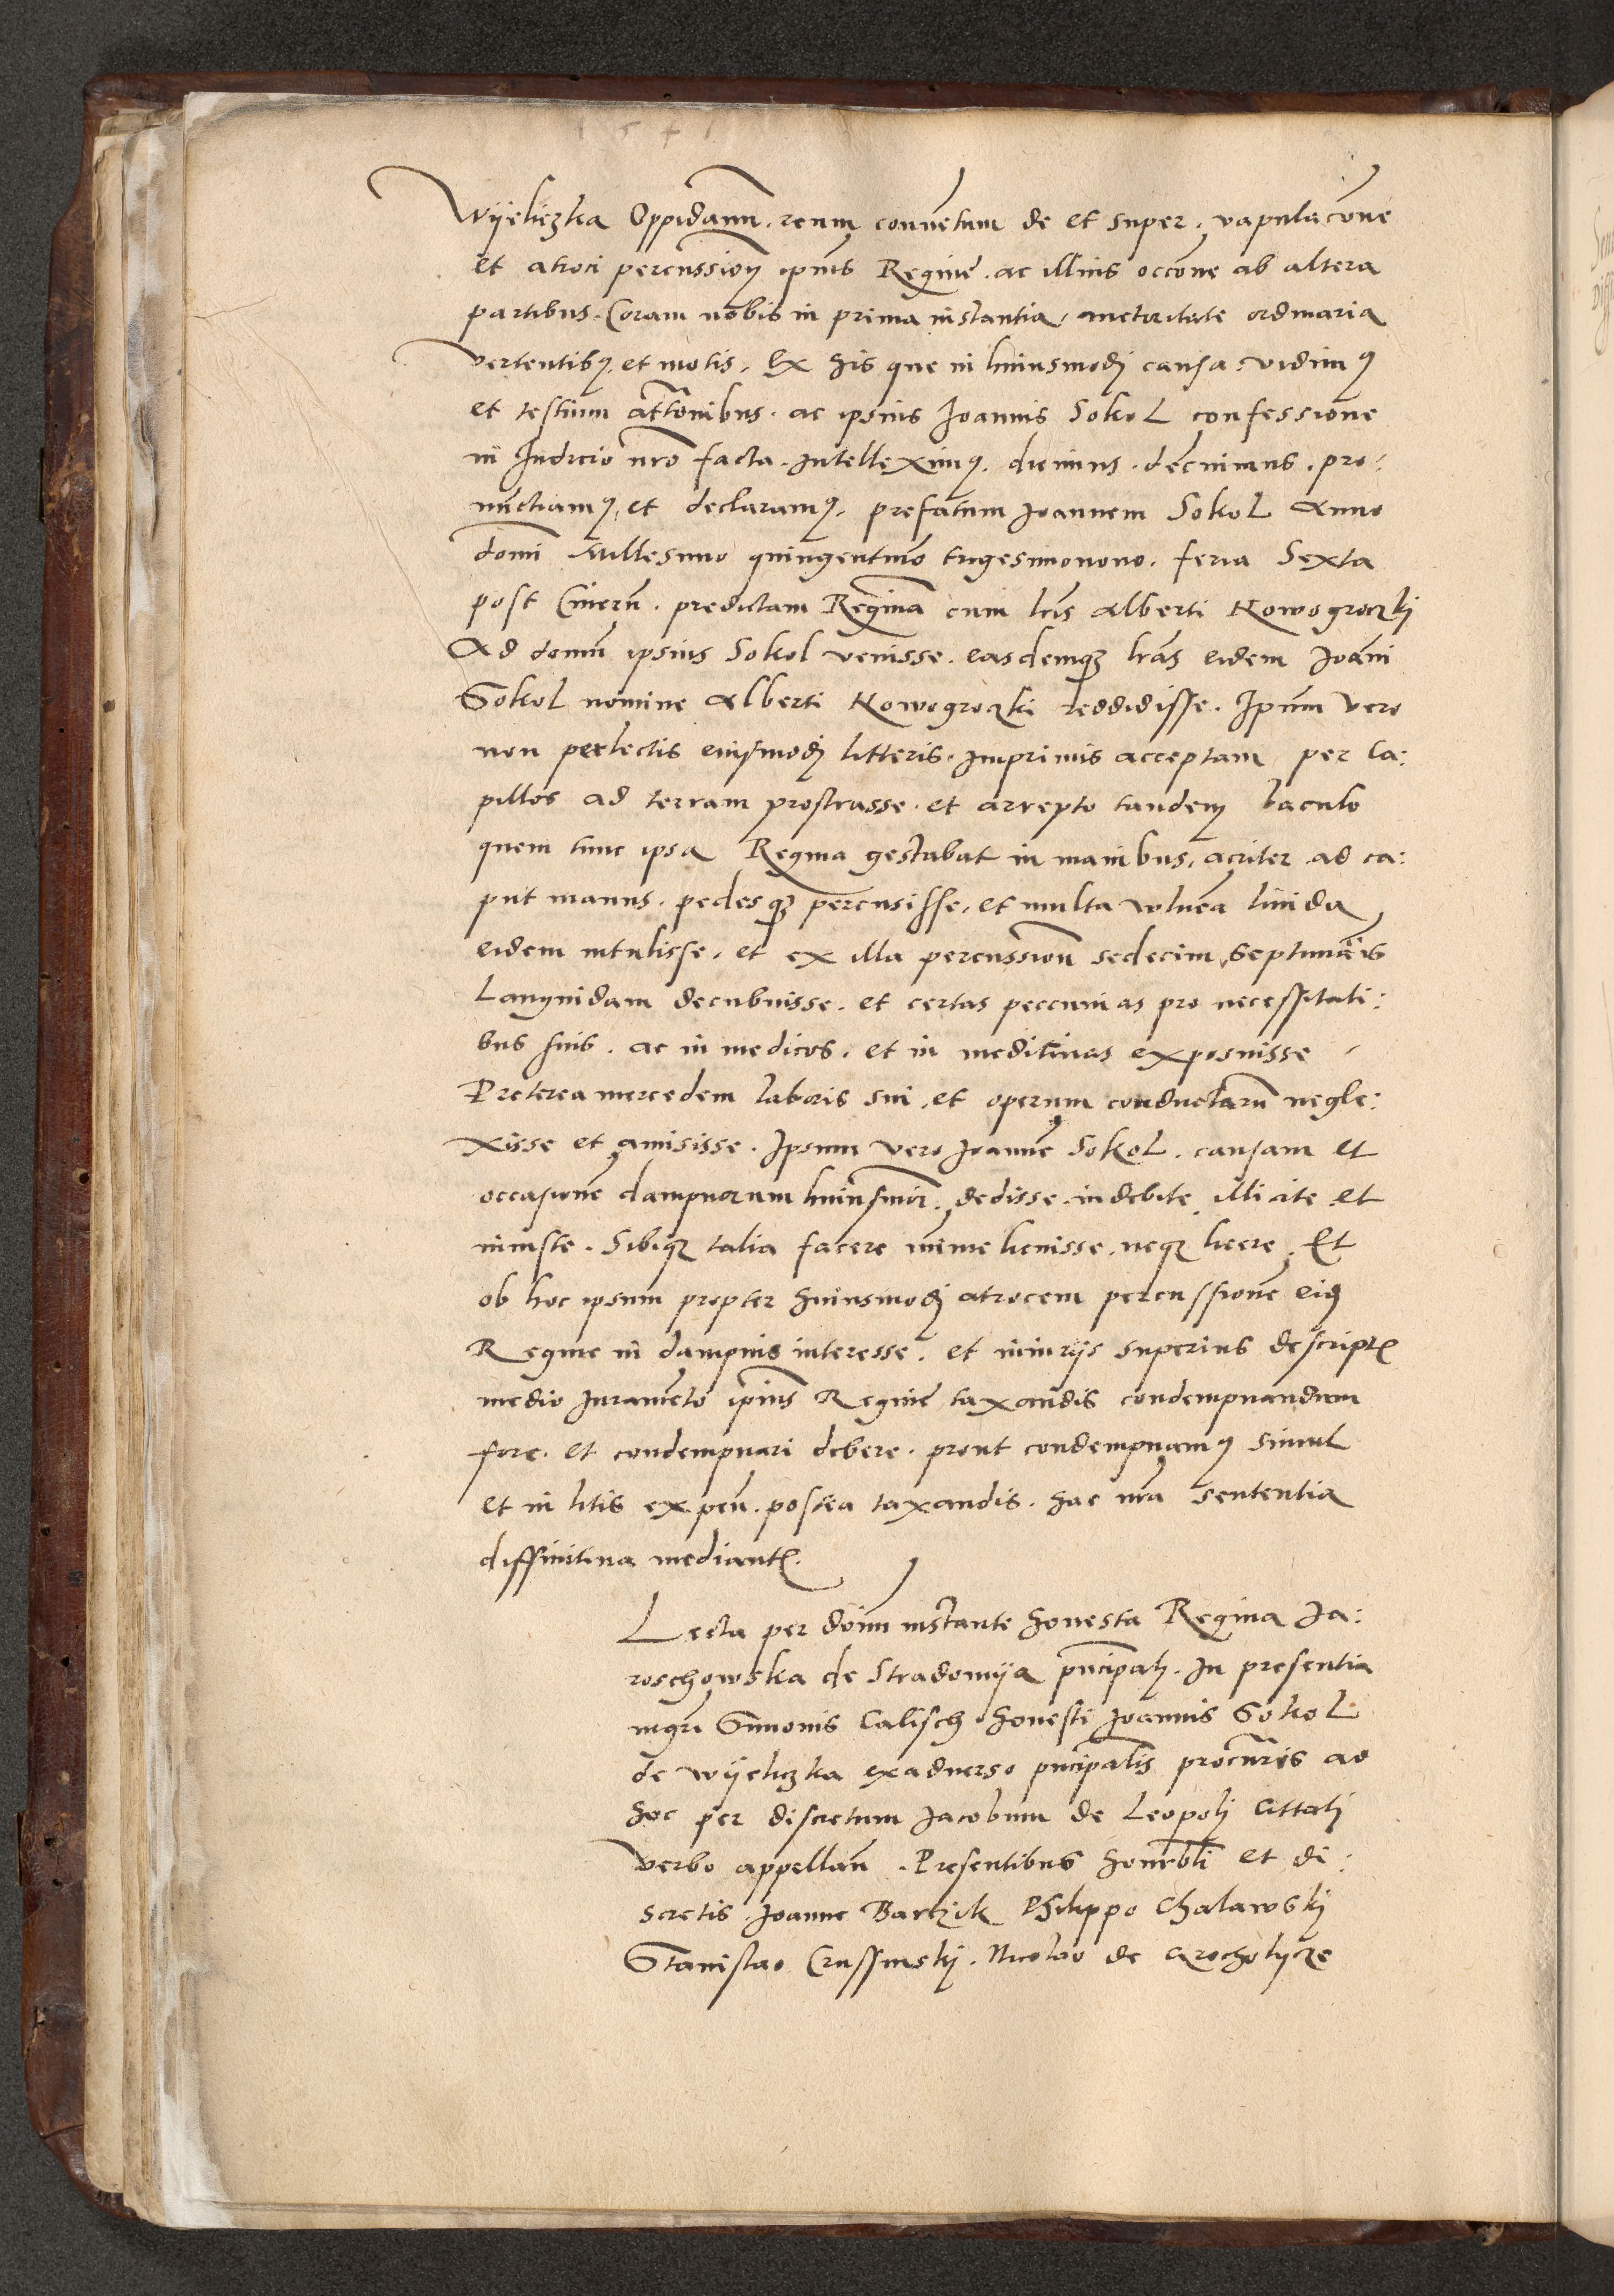 1541
Wyeliczka Oppidanum. reum conventum de et super. vapulacõne
et atroci percussioñ ipius Regine. ac illius occõne ab altera
partibus. Coram nobis in prima instantia. auctoritate ordinaria
vertentibꝰ et motis. Ex his que in huiusmodi causa. vidimꝰ
et testium attõnibus. ac ipsius Joannis Sokol confessione
in Judicio nr̃o facta. intelleximꝰ. dicimus. decnimus. pro:
nunctiamꝰ, et declaramꝰ. prefatum Joannem Sokol Anno
domi Millesimo quingentmo trigesimonono. feria Sexta
post Cinerũ. predictam Reginã cum lris Alberti Nowogroczki
Ad domũ ipsius Sokol venisse. easdemqꝫ lrãs eidem Joãni
Sokol nomine Alberti Nowogroczki reddidisse. Ipũm vero
non perlectis eiusmodi litteris. imprimis acceptam per Ca:
pillos ad terram prostrasse. et arrepto tandem baculo
quem tunc ipsa Regina gestabat in manibus, acriter ad ca:
put manus. pedesqꝫ percusisse, et multa vulnẽa livida
eidem intulisse. et ex illa percussioñ sedecim septimãis
Languidam decubuisse. et certas peccunias pro necessitati:
bus suis. ac in medicos. et in medicinas exposuisse
Preterea mercedem laboris sui. et operum conductarũ negle:
xisse et amisisse. Ipsum vero Joannẽ Sokol. causam et
occasionẽ dampnorum huiusmõi. dedisse. indebite. illicite et
iniuste. Sibiqꝫ talia facere minime licuisse, neqꝫ licere. Et
ob hoc ipsum propter huiusmodi atrocem percussionẽ eid
Regine in dampnis interesse. et iniurijs superius descript
medio Juramẽto ipius Regine taxandis condempnandum
fore. et condempnari debere. prout condempnamꝰ simul
et in litis expeñ. postea taxandis. hac nr̃a sententia
diffinitiva mediante.
Lecta per doĩm instante honesta Regina Ja:
roschowska de Stradomya pñcipali. In presentia
mgri Simonis Calisch. honesti Joannis Sokol
de Wyeliczka exadverso pncipalis procũris ad
hoc per discretum Jacobum de Leopoli Cittati
verbo appellañ. Presentibus honorbli et di:
scretis. Joanne Bartzik Philippo Chalawski
Stanislao Crussinskj. Nicolao de Grocholycze